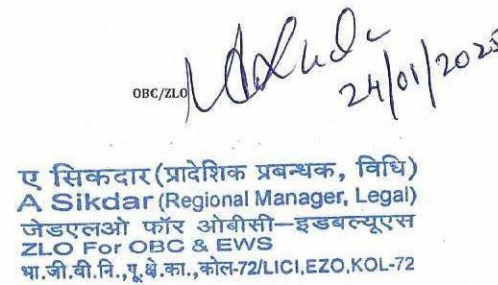 OBC/ZLO
24/01/2025
ए सिकदार (प्रादेशिक प्रबन्धक, विधि)
A Sikdar (Regional Manager, Legal)
जेडएलओ फॉर ओबीसी–इडबल्यूएस
ZLO For OBC & EWS
भा.जी.बी.नि.,पू.क्षे.का.,कोल-72/LICI,EZO,KOL-72